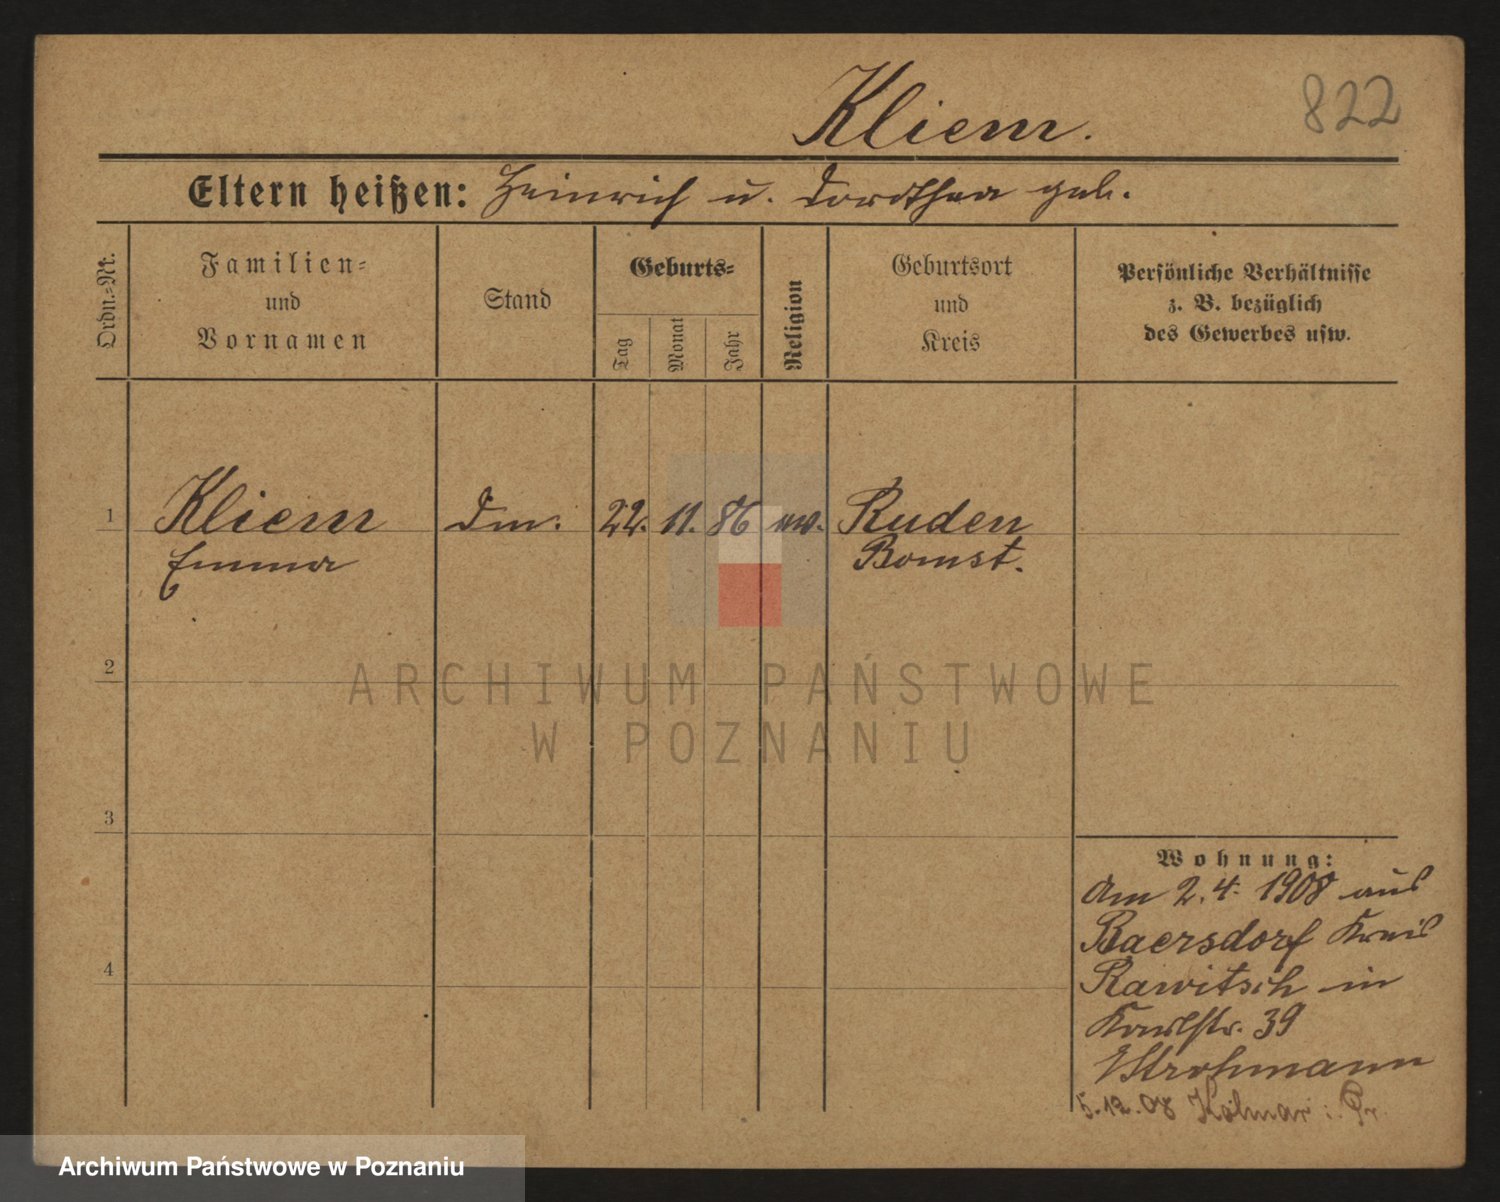 Kliem.
822
Eltern heißen: Heinrich u. Dorothea geb.
Ordn.=Nr.
Familien=
und
Vornamen
Stand
Geburts=
Tag
Monat
Jahr
Religion
Geburtsort
und
Kreis
Persönliche Verhältnisse
z. B. bezüglich
des Gewerbes usw.
1
Kliem
Emma
22. 11. 86
Ruden
Bomst.
2
ARCHIWUM PAŃSTWOWE
W POZNANIU
3
4
Wohnung:
Am 2.4. 1908 aus
Baersdorf Kreis
Rawitsch in
Karlstr. 39
Strohmann
5.12.08 Kolmar i. Pr.
Archiwum Państwowe w Poznaniu